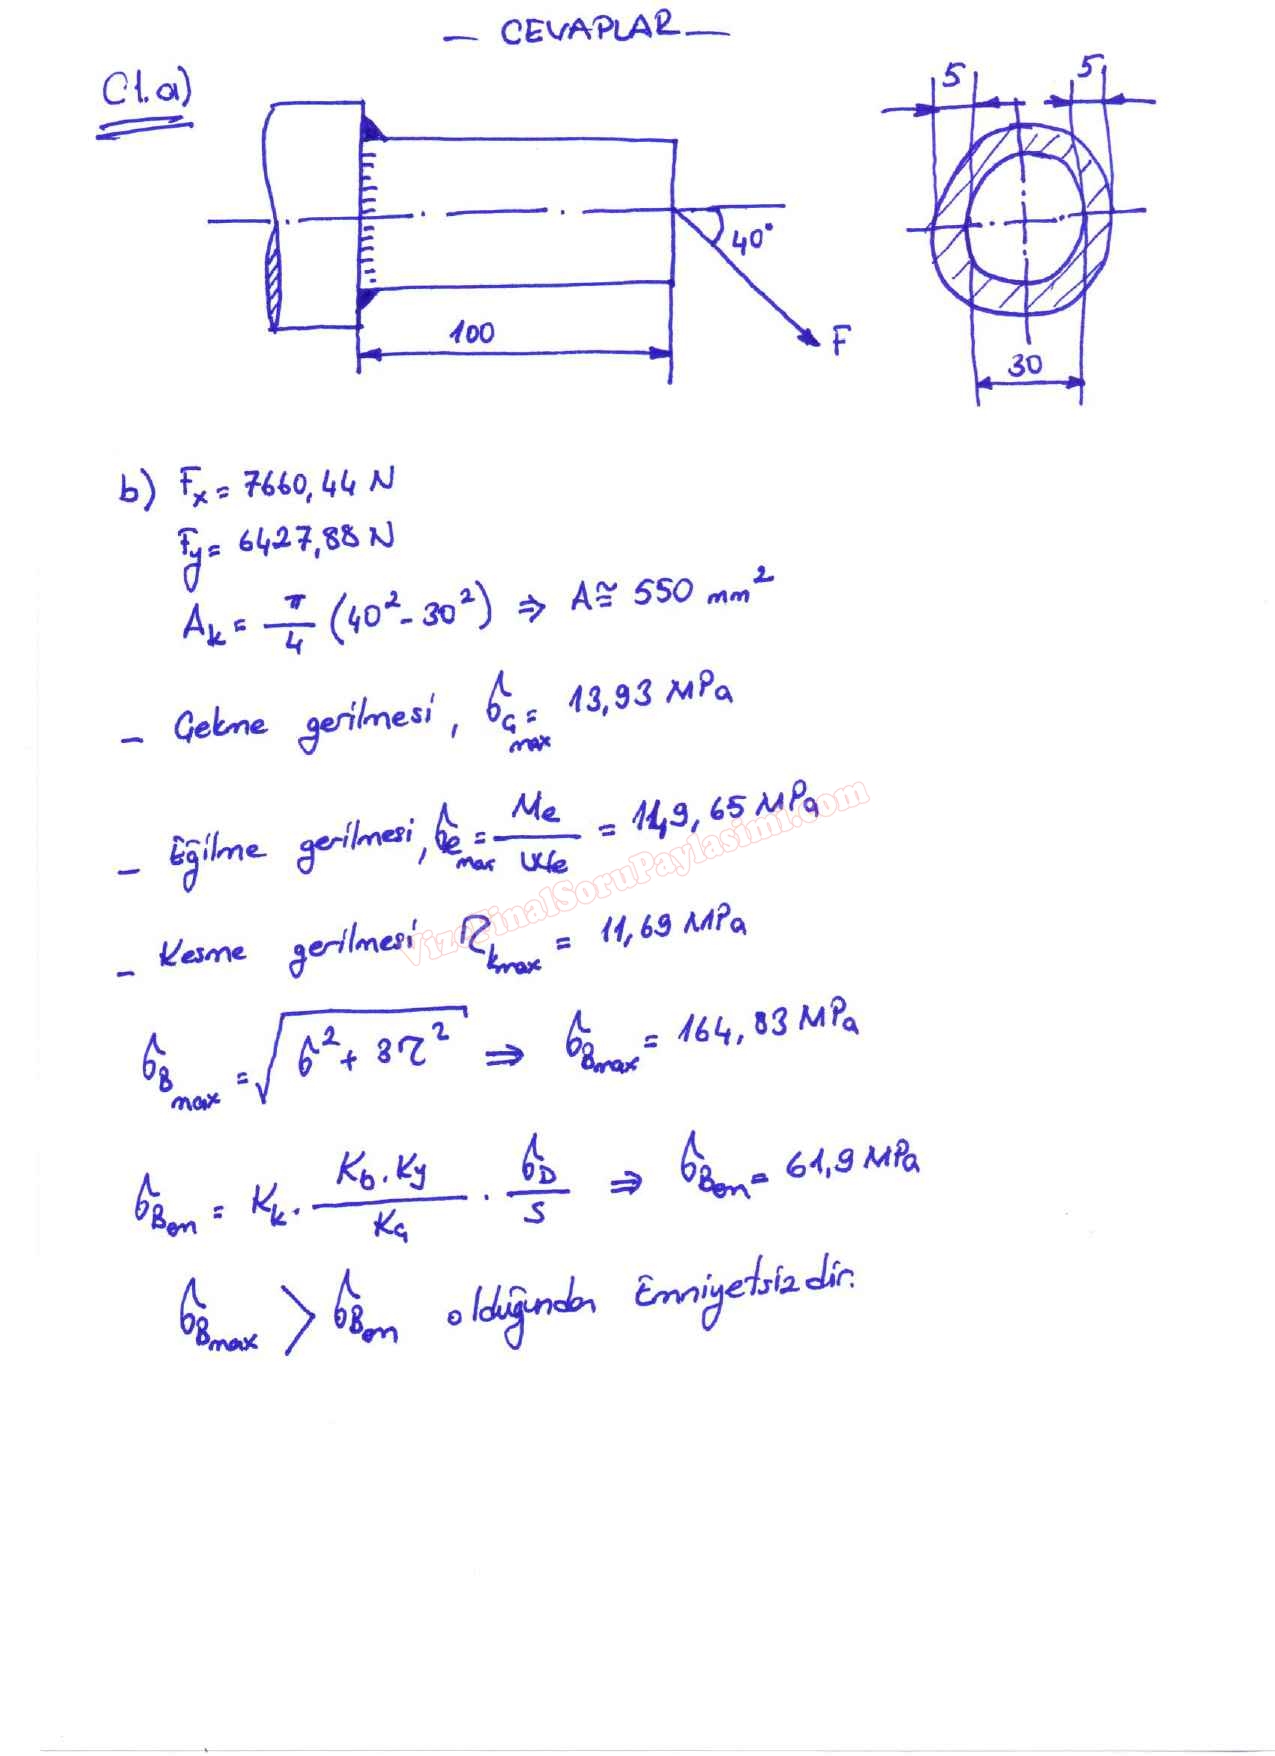 — CEVAPLAR —
C1.a)
5 5
40°
F
100
30
b) Fx = 7660,44 N
Fy = 6427,88 N
Ak = π/4 (40² - 30²) ⇒ A ≅ 550 mm²
- Çekme gerilmesi, σÇmax = 13,93 MPa
- Eğilme gerilmesi, σemax = Me/We = 149,65 MPa
- Kesme gerilmesi τkmax = 11,69 MPa
σBmax = √(σ² + 3τ²) ⇒ σBmax = 164,83 MPa
σBem = Kk · Kb.Ky/KÇ · σD/S ⇒ σBem = 61,9 MPa
σBmax > σBem olduğundan Emniyetsizdir.
VizeFinalSoruPaylasimi.com